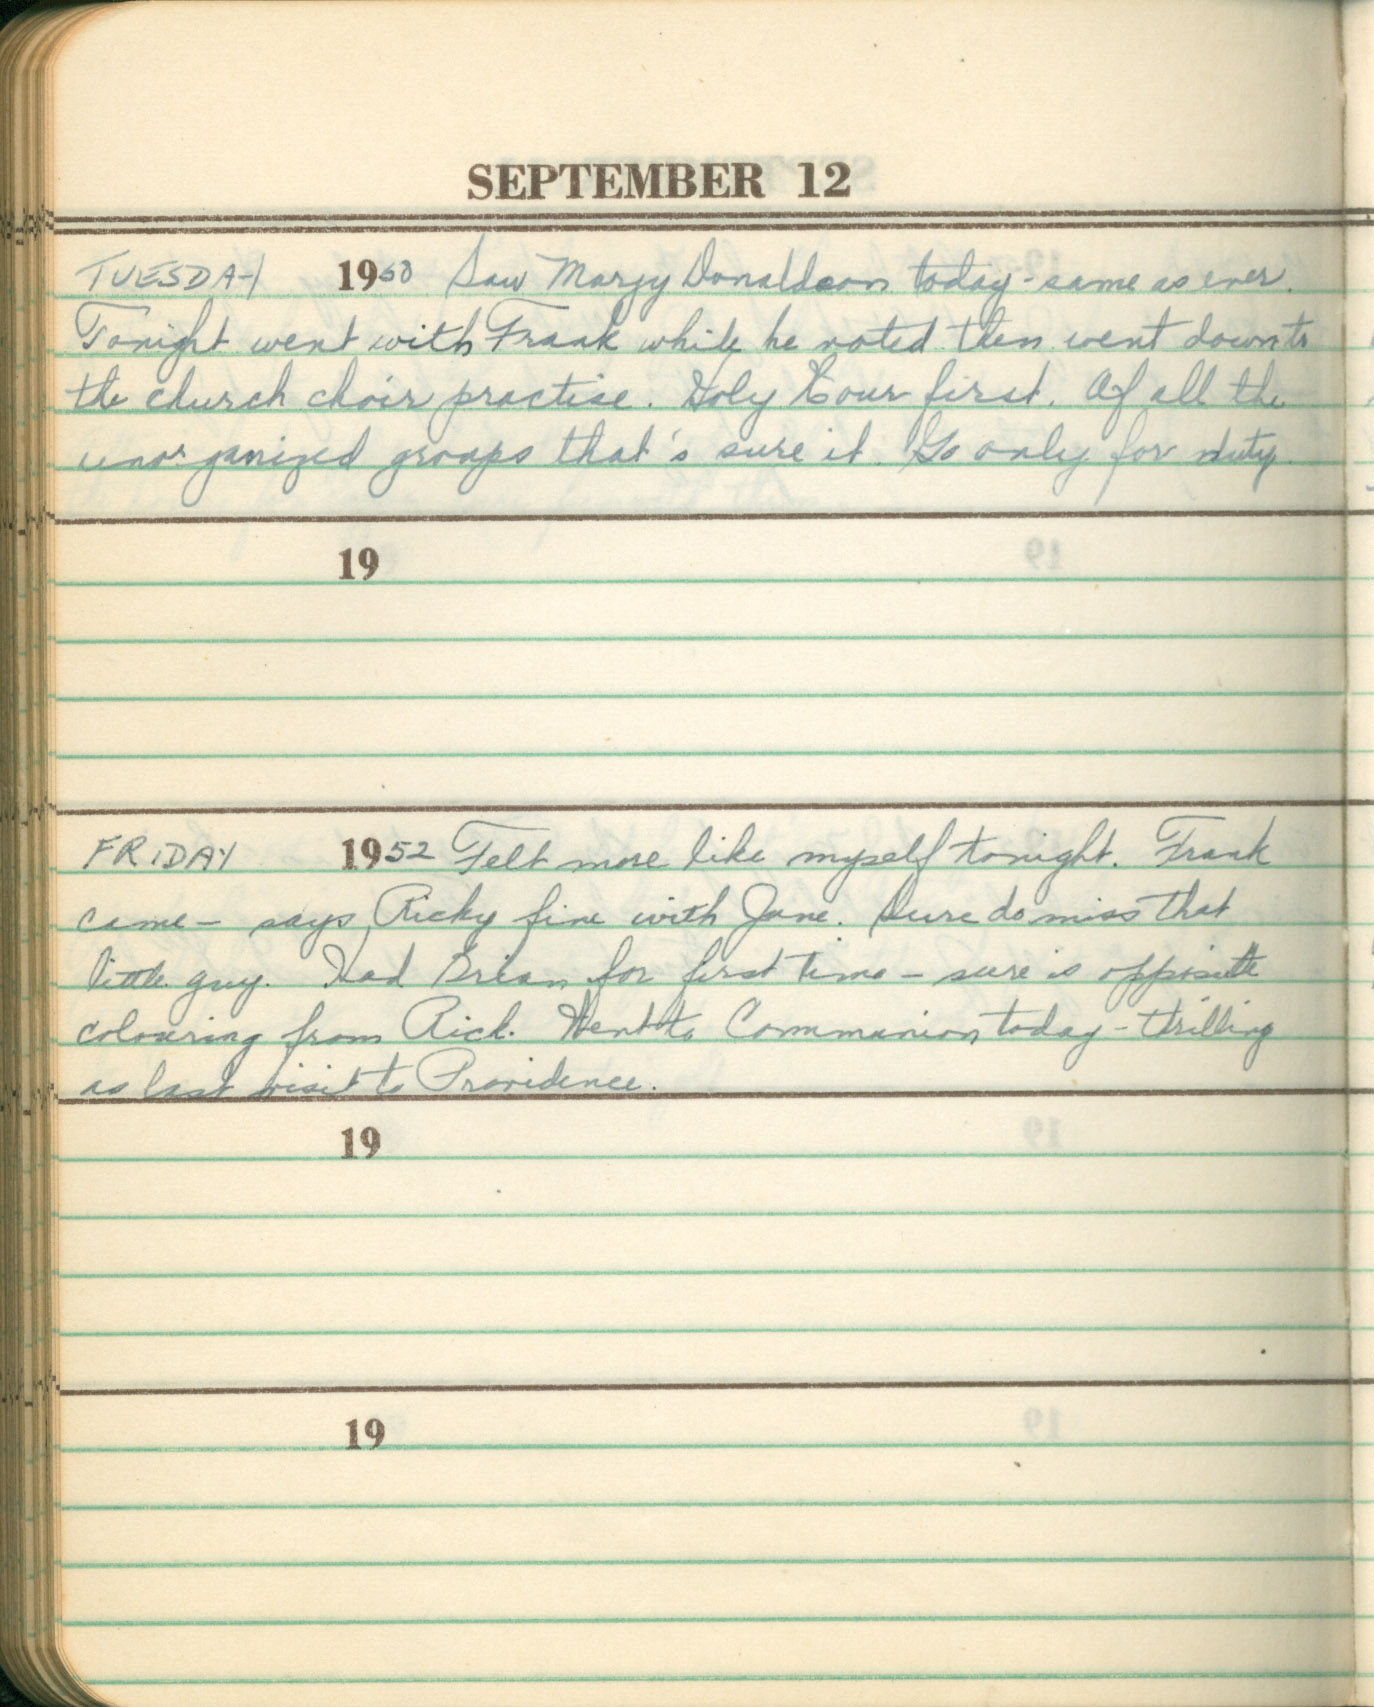 SEPTEMBER 12
TUESDAY 1950 Saw Margy Donaldson today - same as ever.
Tonight went with Frank while he voted then went down to
the church choir practise. Holy Hour first. Of all the
unorganized groups that's sure it. Go only for duty.
19
FRIDAY 1952 Felt more like myself tonight. Frank
came - says Ricky fine with Jane. Sure do miss that
little guy. Had Brian for first time - sure is opposite
colouring from Rick. Went to Communion today - thrilling
as last visit to Providence.
19
19